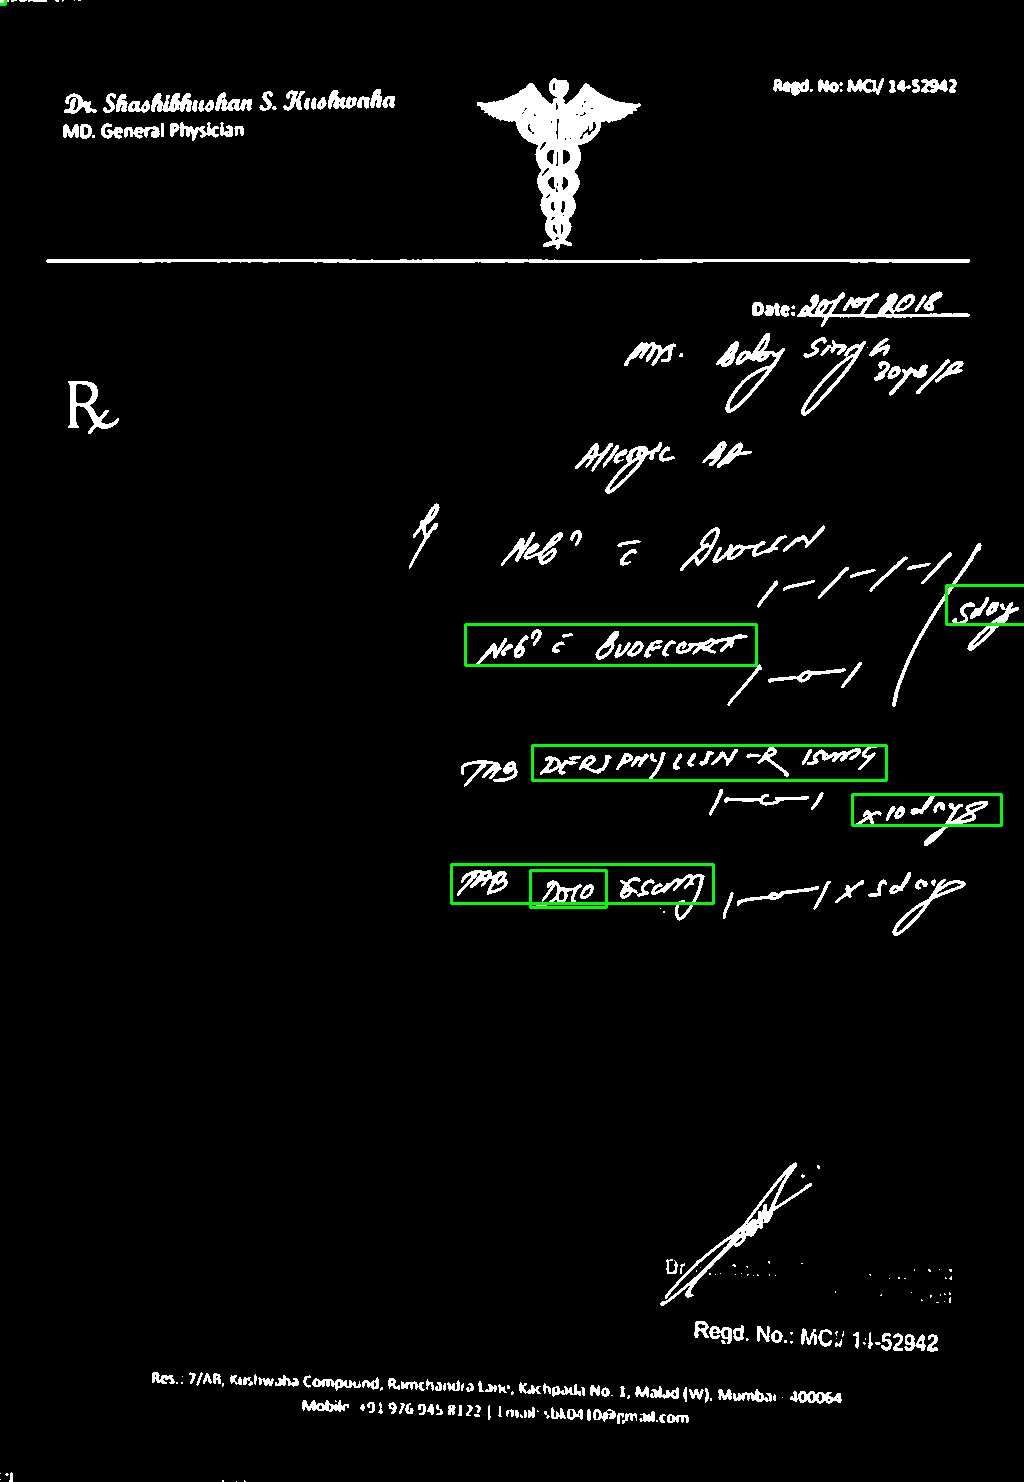 Dr. Shashibhushan S. Kushwaha
MD. General Physician
Regd. No: MCI/ 14-52942
Date: 20/10/2018
Mrs. Baby Singh
30yrs/F
Rx
Allergic BA
Rx
Neb? c̄ DUOLIN
1-1-1-1
5day
Neb? c̄ BUDECORT
1-0-1
TAB DERIPHYLLIN-R 150mg
1-0-1
x 10days
TAB DOLO 650mg 1-0-1 x 5day
Dr
Regd. No.: MCI/ 14-52942
Res.: 7/AB, Kushwaha Compound, Ramchandra Lane, Kachpada No. 1, Malad (W), Mumbai - 400064
Mobile: +91 976 945 8122 | Email: sbk0410@gmail.com